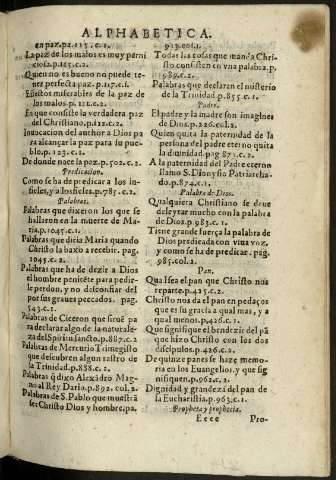 ALPHABETICA.
en paz. pa. 115. c. 1.
La paz de los malos es muy perni
ciosa. p. 115. c. 2.
Quien no es bueno no puede te-
ner perfecta paz. p. 117. c. 1.
Effectos miserables de la paz de
los malos. p. 121. c. 2.
En que consiste la verdadera paz
del Christiano, p. 121. c. 2.
Inuocacion del author a Dios pa
ra alcançar la paz para su pue-
blo. p. 123. c. 1.
De donde nace la paz. p. 502. c. 2.
Predicacion.
Como se ha de predicar a los in-
fieles, y a los fieles. p. 785. c. 2.
Palabras.
Palabras que dixeron los que se
hallaron en la muerte de Ma-
ria. p. 1045. c. 1.
Palabras que diria Maria quando
Christo la baxo a recebir. pag.
1045. c. 2.
Palabras que ha de dezir a Dios
el hombre peniẽte para pedir-
le perdon, y no desconfiar del
por sus graues peccados. pag.
543. c. 1.
Palabras de Ciceron que siruẽ pa
ra declarar algo de la naturale-
za del Spiritu sancto. p. 887. c. 2
Palabras de Mercurio Trimegisto
que descubren algun rastro de
la Trinidad. p. 888. c. 1.
Palabras q̃ dixo Alexãdro Mag-
no al Rey Dario. p. 892. col. 2.
Palabras de S. Pablo que muestrã
ser Christo Dios y hombre. pa.
933. col. 1.
Todas las cosas que manda Chri-
sto consisten en vna palabra. p.
989. c. 2.
Palabras que declaran el misterio
de la Trinidad. p. 855. c. 1.
Padre.
El padre y la madre son imagines
de Dios. p. 226. col. 2.
Quien quita la paternidad de la
persona del padre eterno quita
la diuinidad. pag 871. c. 2.
A la paternidad del Padre eterno
llamo S. Dionysio Patriarcha-
do. p. 874. c. 1.
Palabra de Dios.
Qualquiera Christiano se deue
deleytar mucho con la palabra
de Dios. p. 983. c. 1.
Tiene grande fuerça la palabra de
Dios predicada con viua voz,
y como se ha de predicar. pag.
985. col. 2.
Pan.
Qual sea el pan que Christo nos
reparte. p. 425. c. 2.
Christo nos da el pan en pedaços
que es su gracia a qual mas, y a
qual menos. p. 426. c. 1.
Que significa el bendezir del pã
que hizo Christo con los dos
discipulos. p. 426. c. 2.
De quinze panes se haze memo-
ria en los Euangelios, y que sig
nifiquen. p. 962. c. 2.
Dignidad y grandezã del pan de
la Eucharistia. p. 963. c. 1.
Propheta y prophecia.
Eeee Pro-